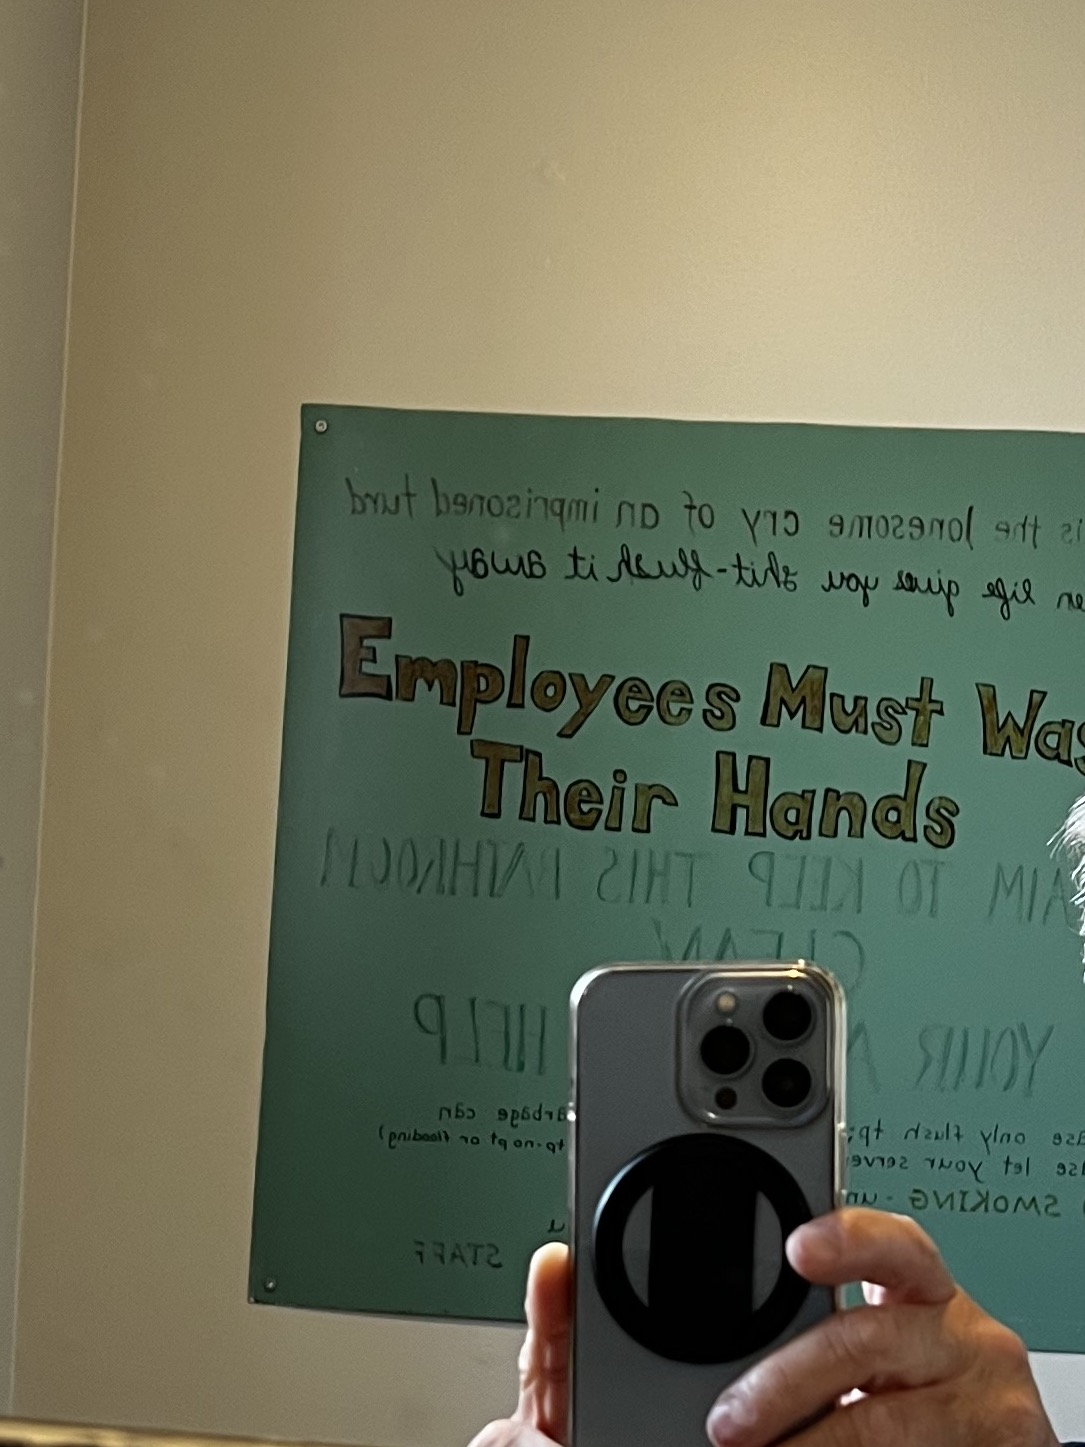 is the lonesome cry of an imprisoned turd
en life gives you shit-flush it away
Employees Must Was
Their Hands
AIM TO KEEP THIS BATHROOM
CLEAN
YOUR A HELP
ase only flush tp; arbage can
ase let your serve tp-no pt or flooding)
SMOKING - un u
STAFF